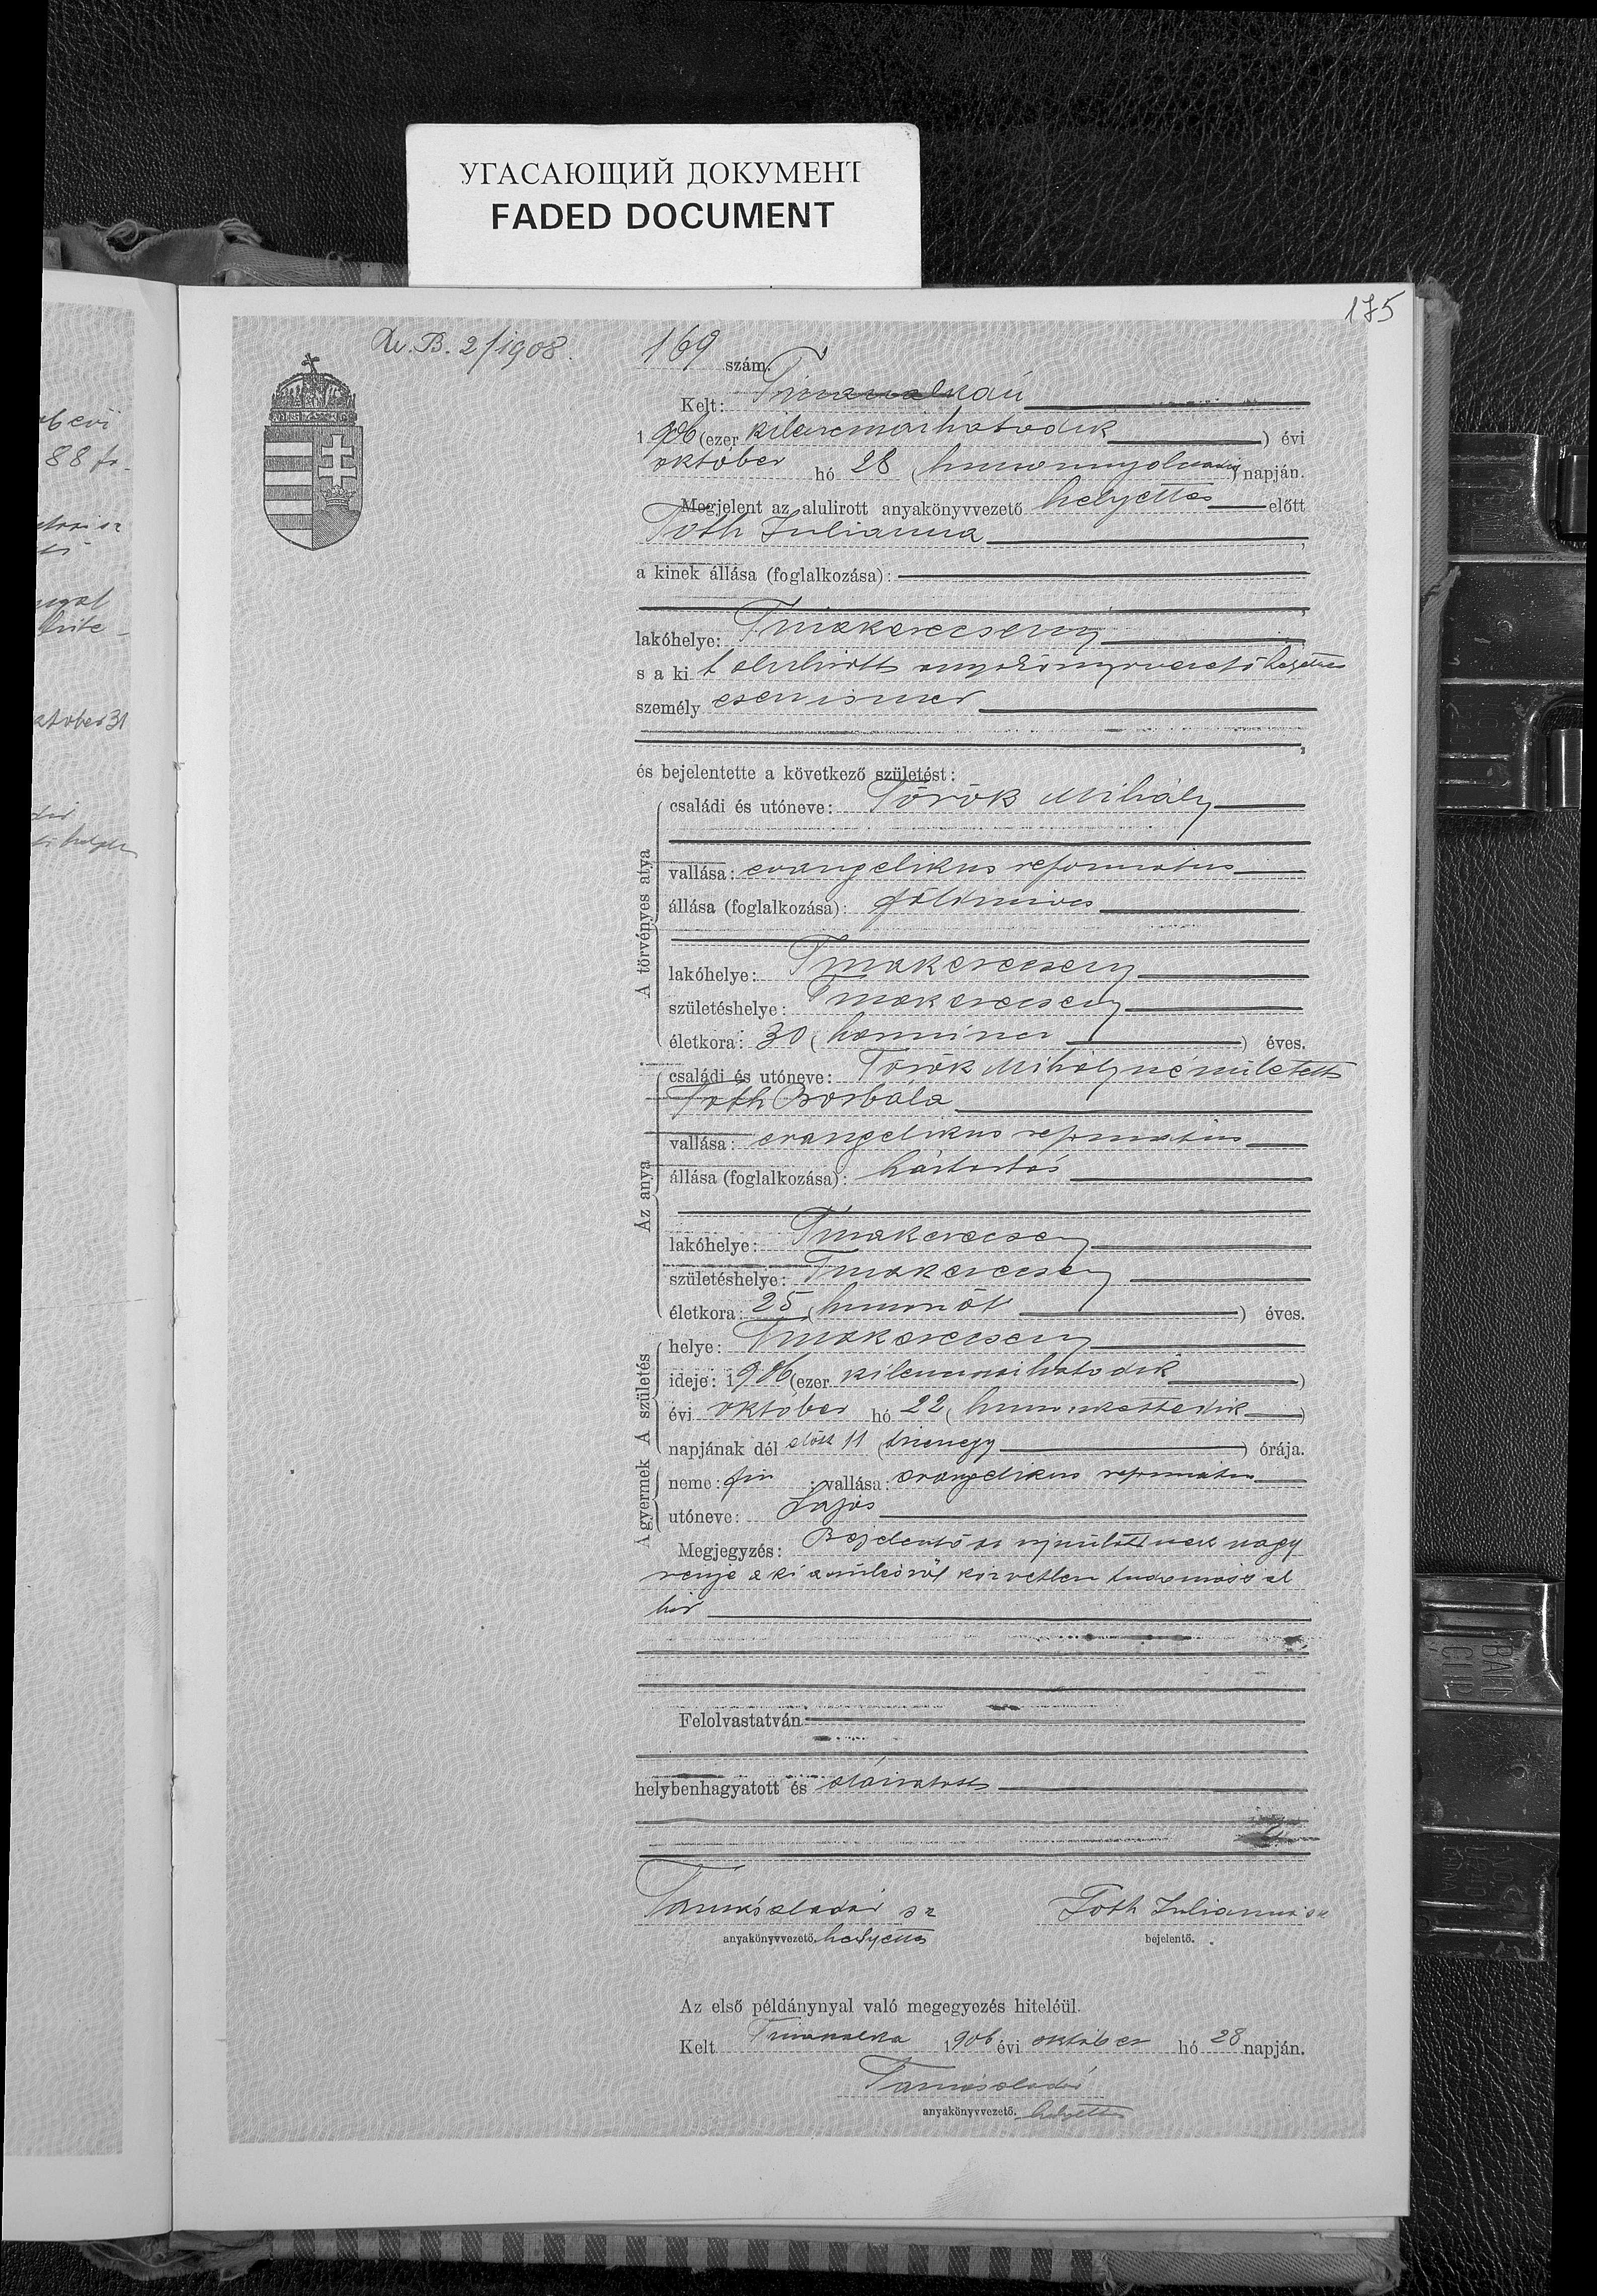 УГАСАЮЩИЙ ДОКУМЕНТ
FADED DOCUMENT
175
B. 2/1908.
169 szám.
Kelt:
1906 (ezer kilencszázhatodik) évi
október hó 28 (huszonnyolcadik) napján.
Megjelent az alulirott anyakönyvvezető helyettes előtt
Tóth Julianna,
a kinek állása (foglalkozása):
lakóhelye: Tiszakerecseny
s a ki t alulirott anyakönyvvezető helyettes
személyesen ismer
és bejelentette a következő születést:
A törvényes atya
családi és utóneve: Török Mihály
vallása: evangelikus reformatus
állása (foglalkozása): földmives
lakóhelye: Tiszakerecseny
születéshelye: Tiszakerecseny
életkora: 30 (harmincz) éves.
Az anya
családi és utóneve: Török Mihályné született
Tóth Borbála
vallása: evangelikus reformatus
állása (foglalkozása): háztartás
lakóhelye: Tiszakerecseny
születéshelye: Tiszakerecseny
életkora: 25 (huszonöt) éves.
A születés
helye: Tiszakerecseny
ideje: 1906 (ezer kilencszázhatodik)
évi október hó 22 (huszonkettedik)
napjának dél előtt 11 (tizenegy) órája.
A gyermek
neme: fiu; vallása: evangelikus reformatus
utóneve: Lajos
Megjegyzés: Bejelentő az ujszülöttnek nagy
a ki a közvetlen tudomással
bir
Felolvastatván
helybenhagyatott és aláiratott
Tamás Aladár sk Tóth Julianna sk
anyakönyvvezető. helyettes bejelentő.
Az első példánynyal való megegyezés hiteléül.
Kelt 1906 évi október hó 28 napján.
Tamás Aladár
anyakönyvvezető. helyettes
88
október 31
BALL
CLIP